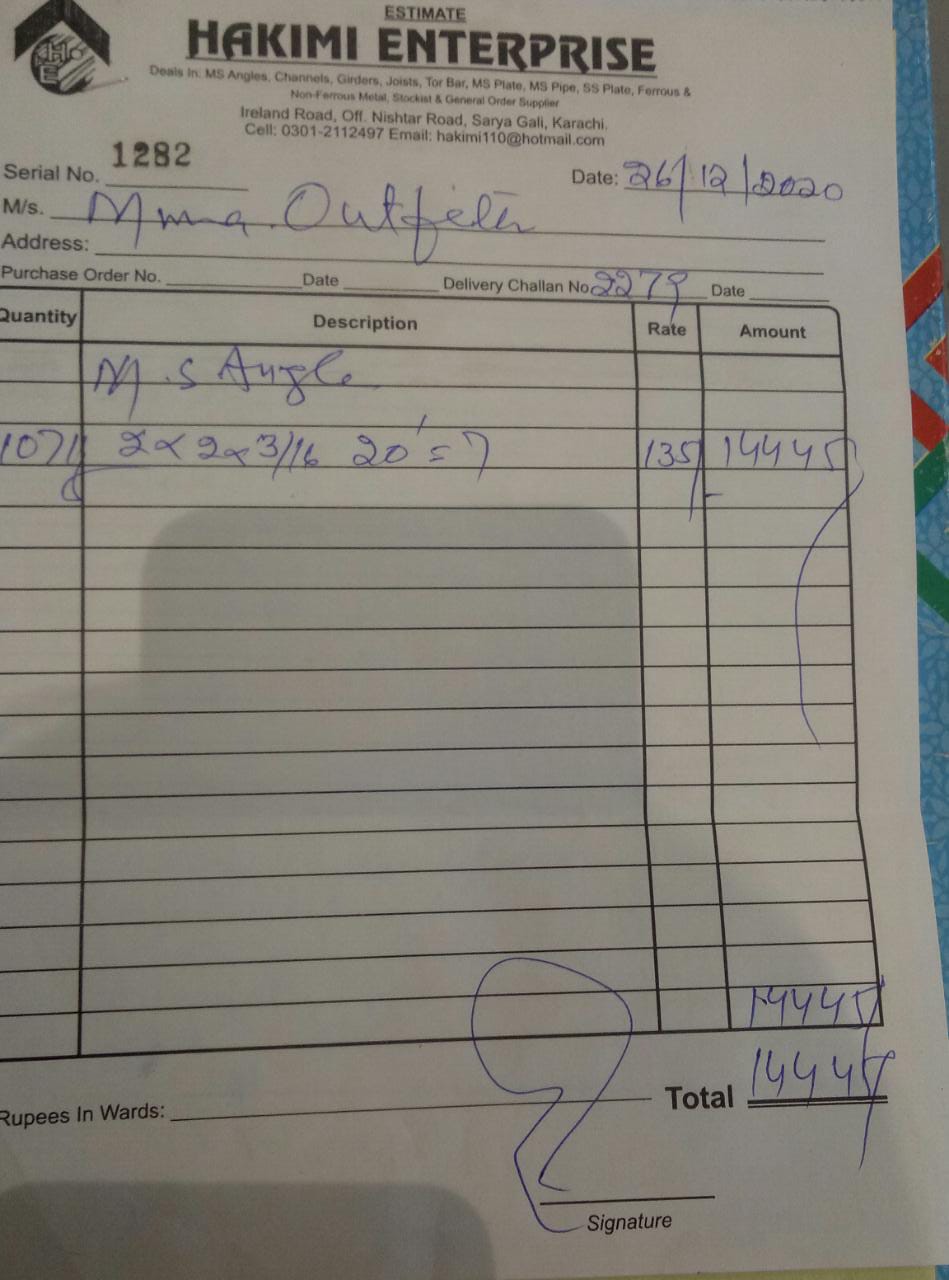 ESTIMATE
HAKIMI ENTERPRISE
Deals In: MS Angles, Channels, Girders, Joists, Tor Bar, MS Plate, MS Pipe, SS Plate, Ferrous &
Non-Ferrous Metal, Stockist & General Order Supplier
Ireland Road, Off. Nishtar Road, Sarya Gali, Karachi.
Cell: 0301-2112497 Email: hakimi110@hotmail.com
Serial No. 1282 Date: 26/12/2020
M/s. Mma Outfiter
Address:
Purchase Order No. Date Delivery Challan No 2279 Date
Quantity Description Rate Amount
M.S Angle
107 2 x 2 x 3/16 20' = 7 135/- 14445
14445
Total 14445
Rupees In Wards:
Signature